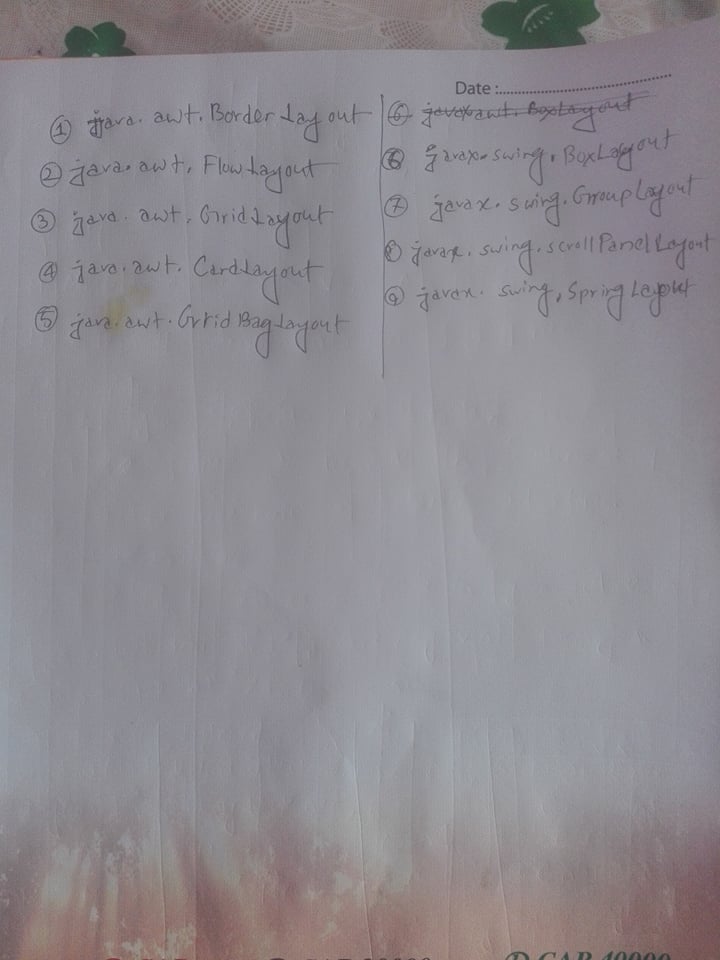 Date :
① java. awt. BorderLayout
② java. awt. FlowLayout
③ java. awt. GridLayout
④ java. awt. CardLayout
⑤ java. awt. GridBagLayout
⑥ javax awt. BoxLayout
⑥ javax. swing. BoxLayout
⑦ javax. swing. GroupLayout
⑧ javax. swing. scrollPanelLayout
⑨ javax. swing. SpringLayout